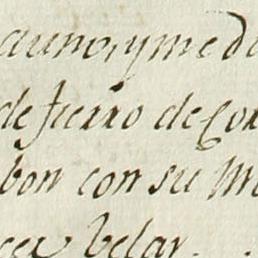 aunoz, y me d
de fierro de Co
bon con su M
cer belar.